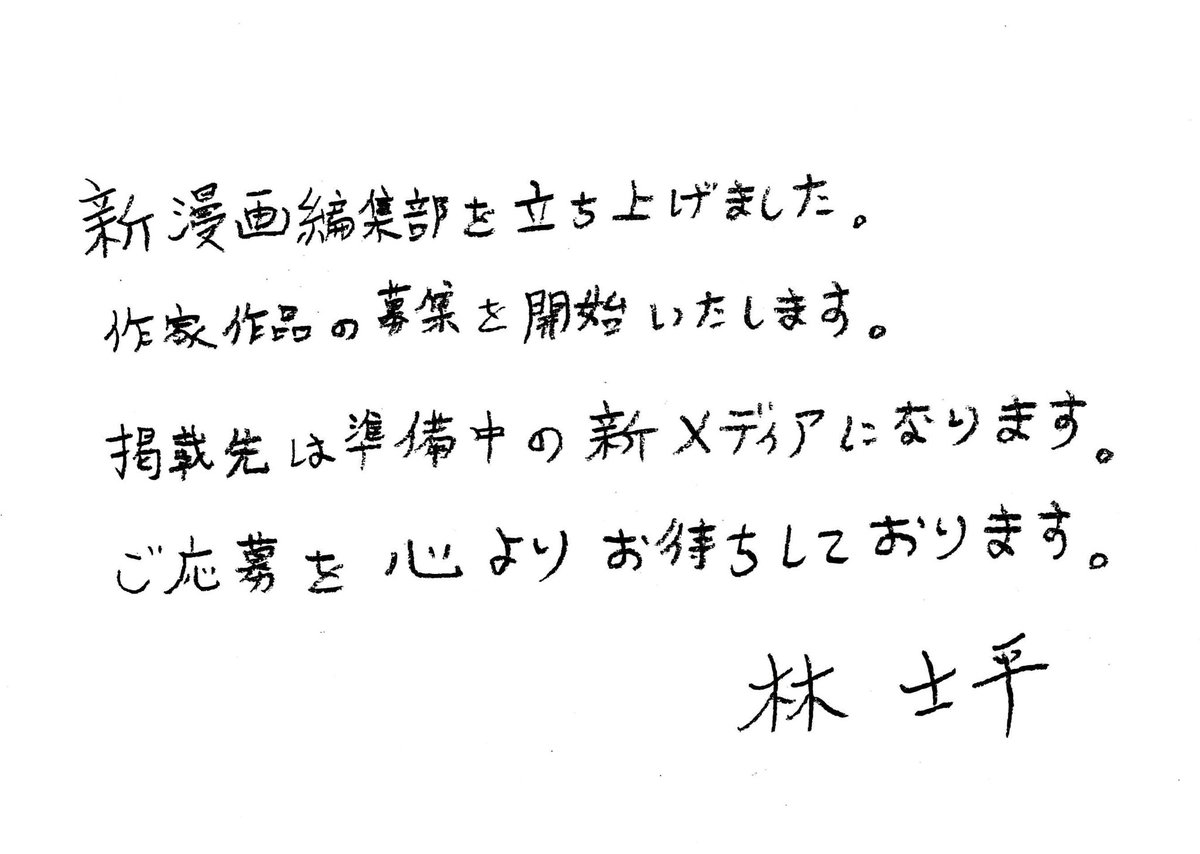 新漫画編集部を立ち上げました。
作家作品の募集を開始いたします。
掲載先は準備中の新メディアになります。
ご応募を心よりお待ちしております。
林 士平